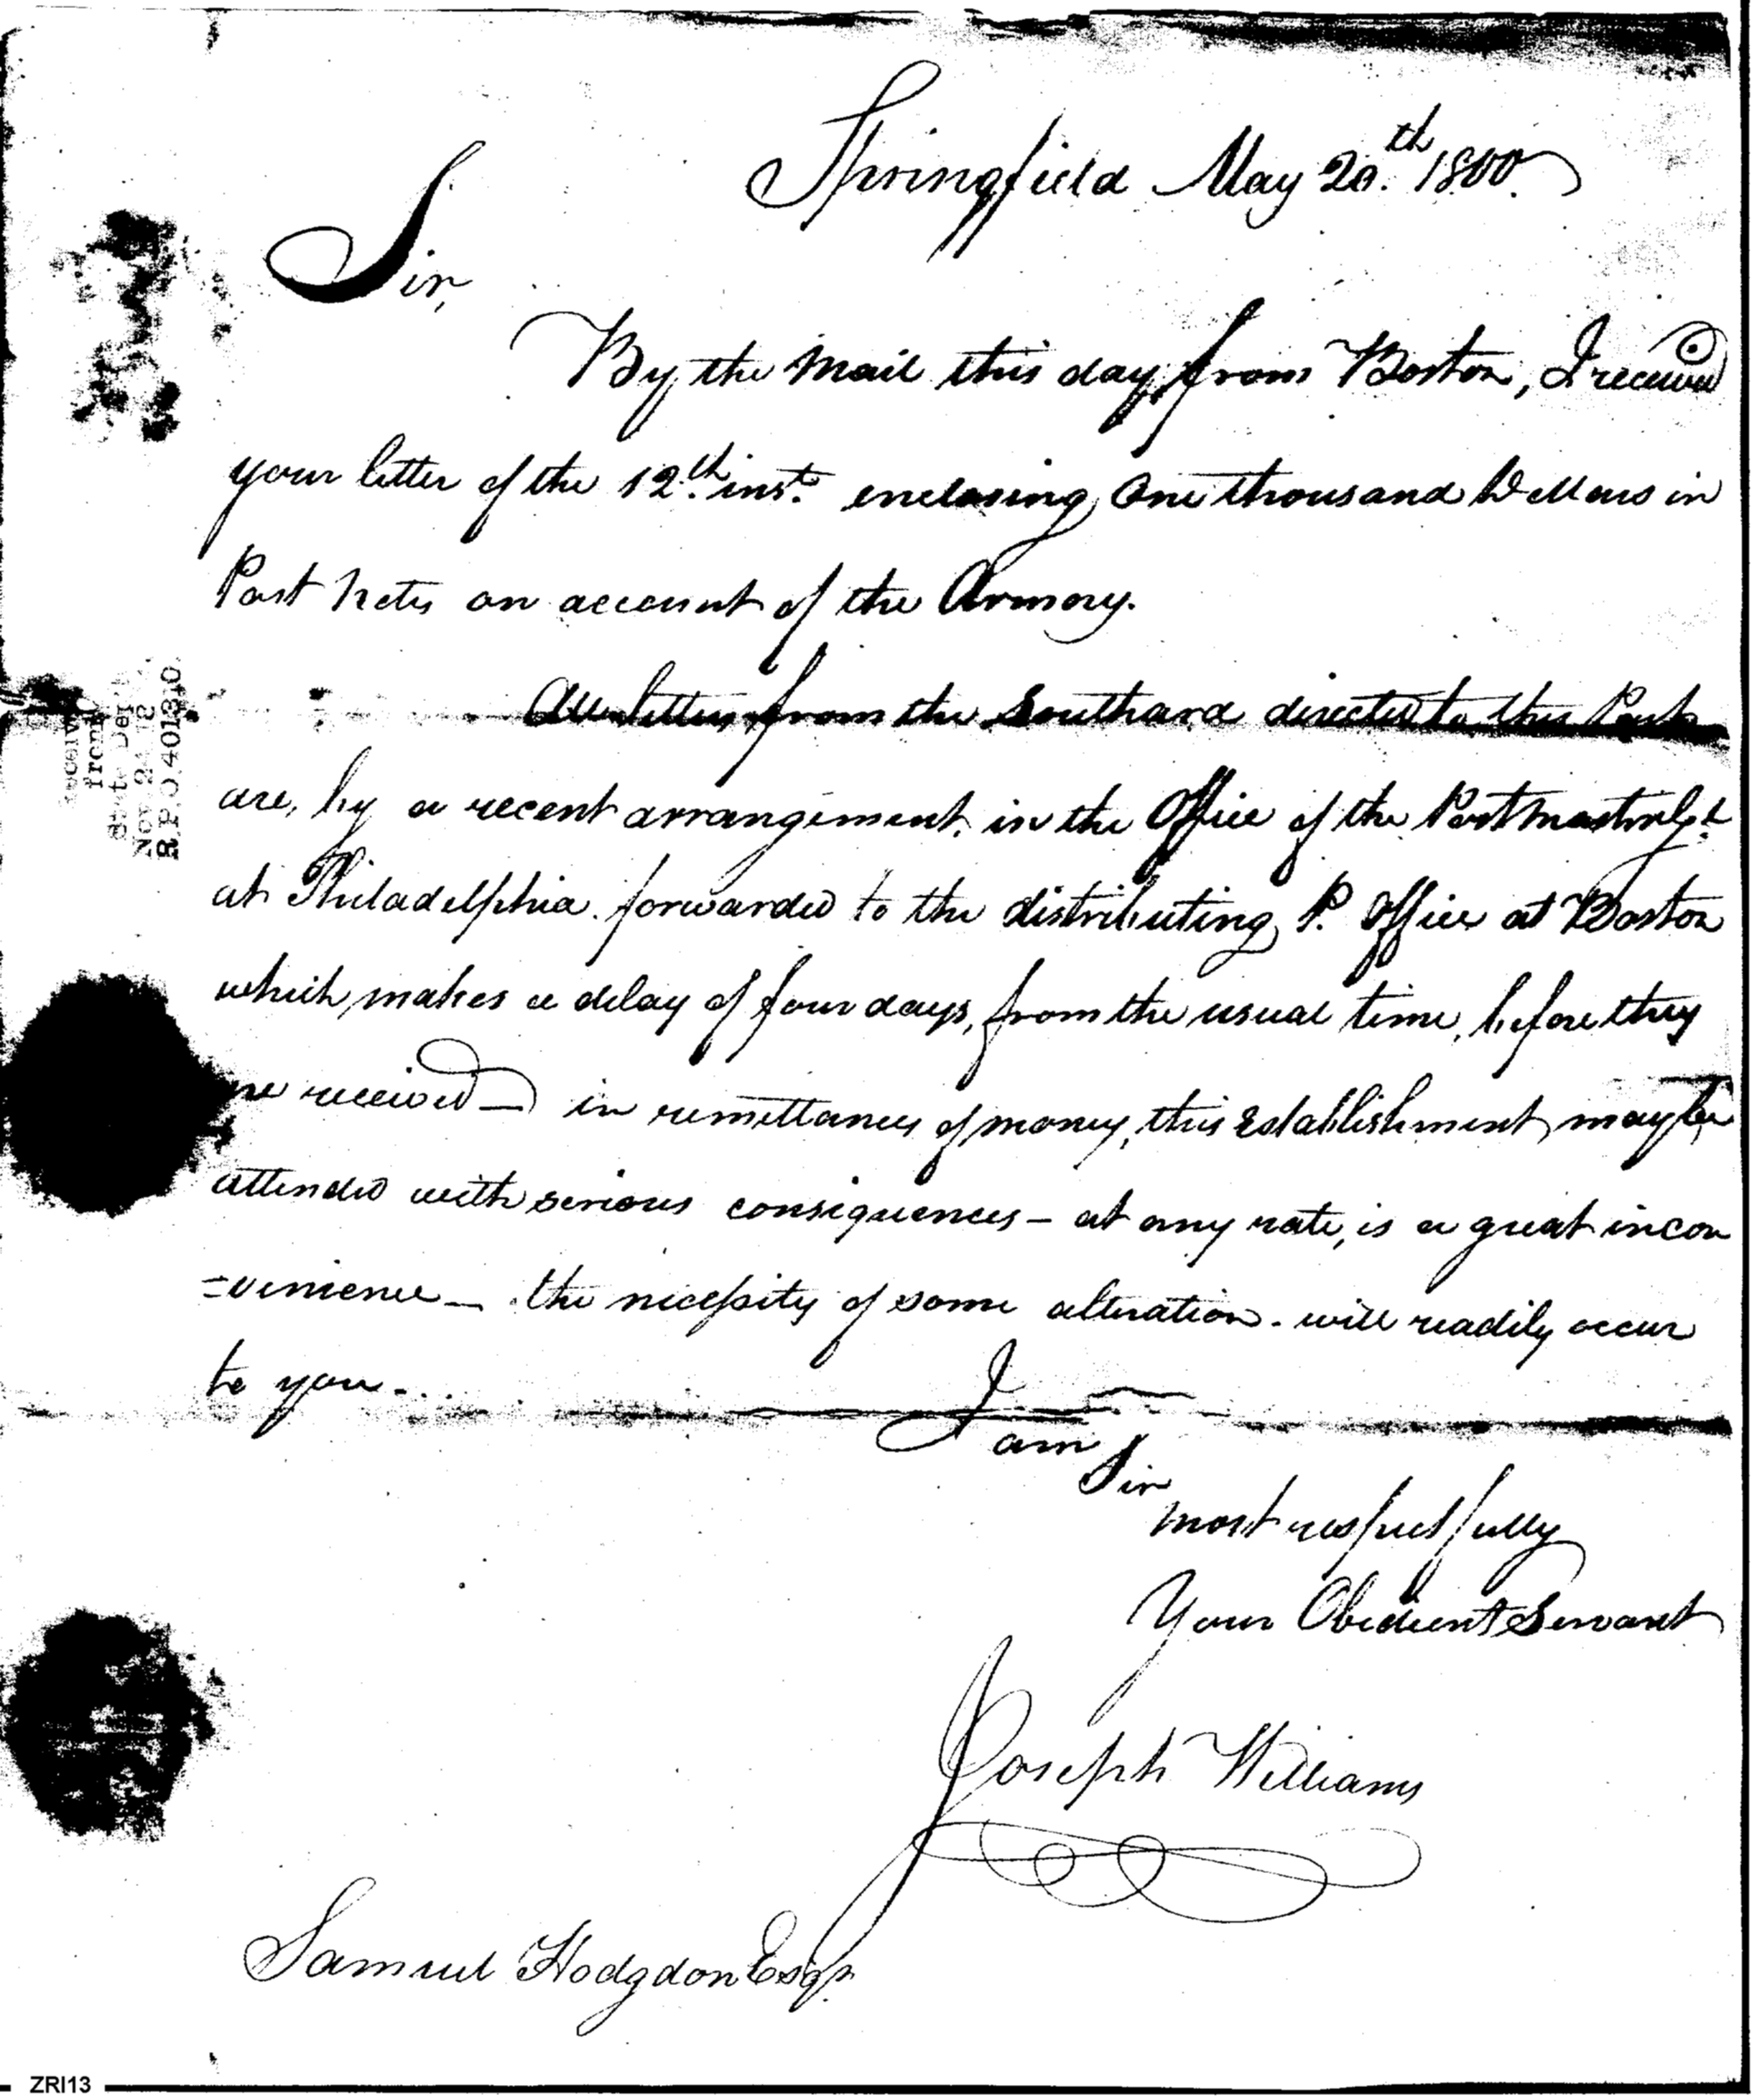 Springfield May 20.th 1800.
Sir,
By the Mail this day from Boston, I received
your letter of the 12.th inst. enclosing One thousand Dollars in
Post Notes on account of the Armory.
All letters from the Southard directed to this Post
are, by a recent arrangement, in the Office of the Postmaster
at Philadelphia. forwarded to the distributing P. Office at Boston
which makes a delay of four days, from the usual time, before they
are received — in remittances of money, this Establishment may be
attended with serious consequences — at any rate, is a great incon
=venience — the necessity of some alteration - will readily occur
to you -
I am Sir
most respectfully
Your Obedient Servant
Joseph Williams
Samuel Hodgdon Esqr.
from
R.P.D. 401310
ZRI13